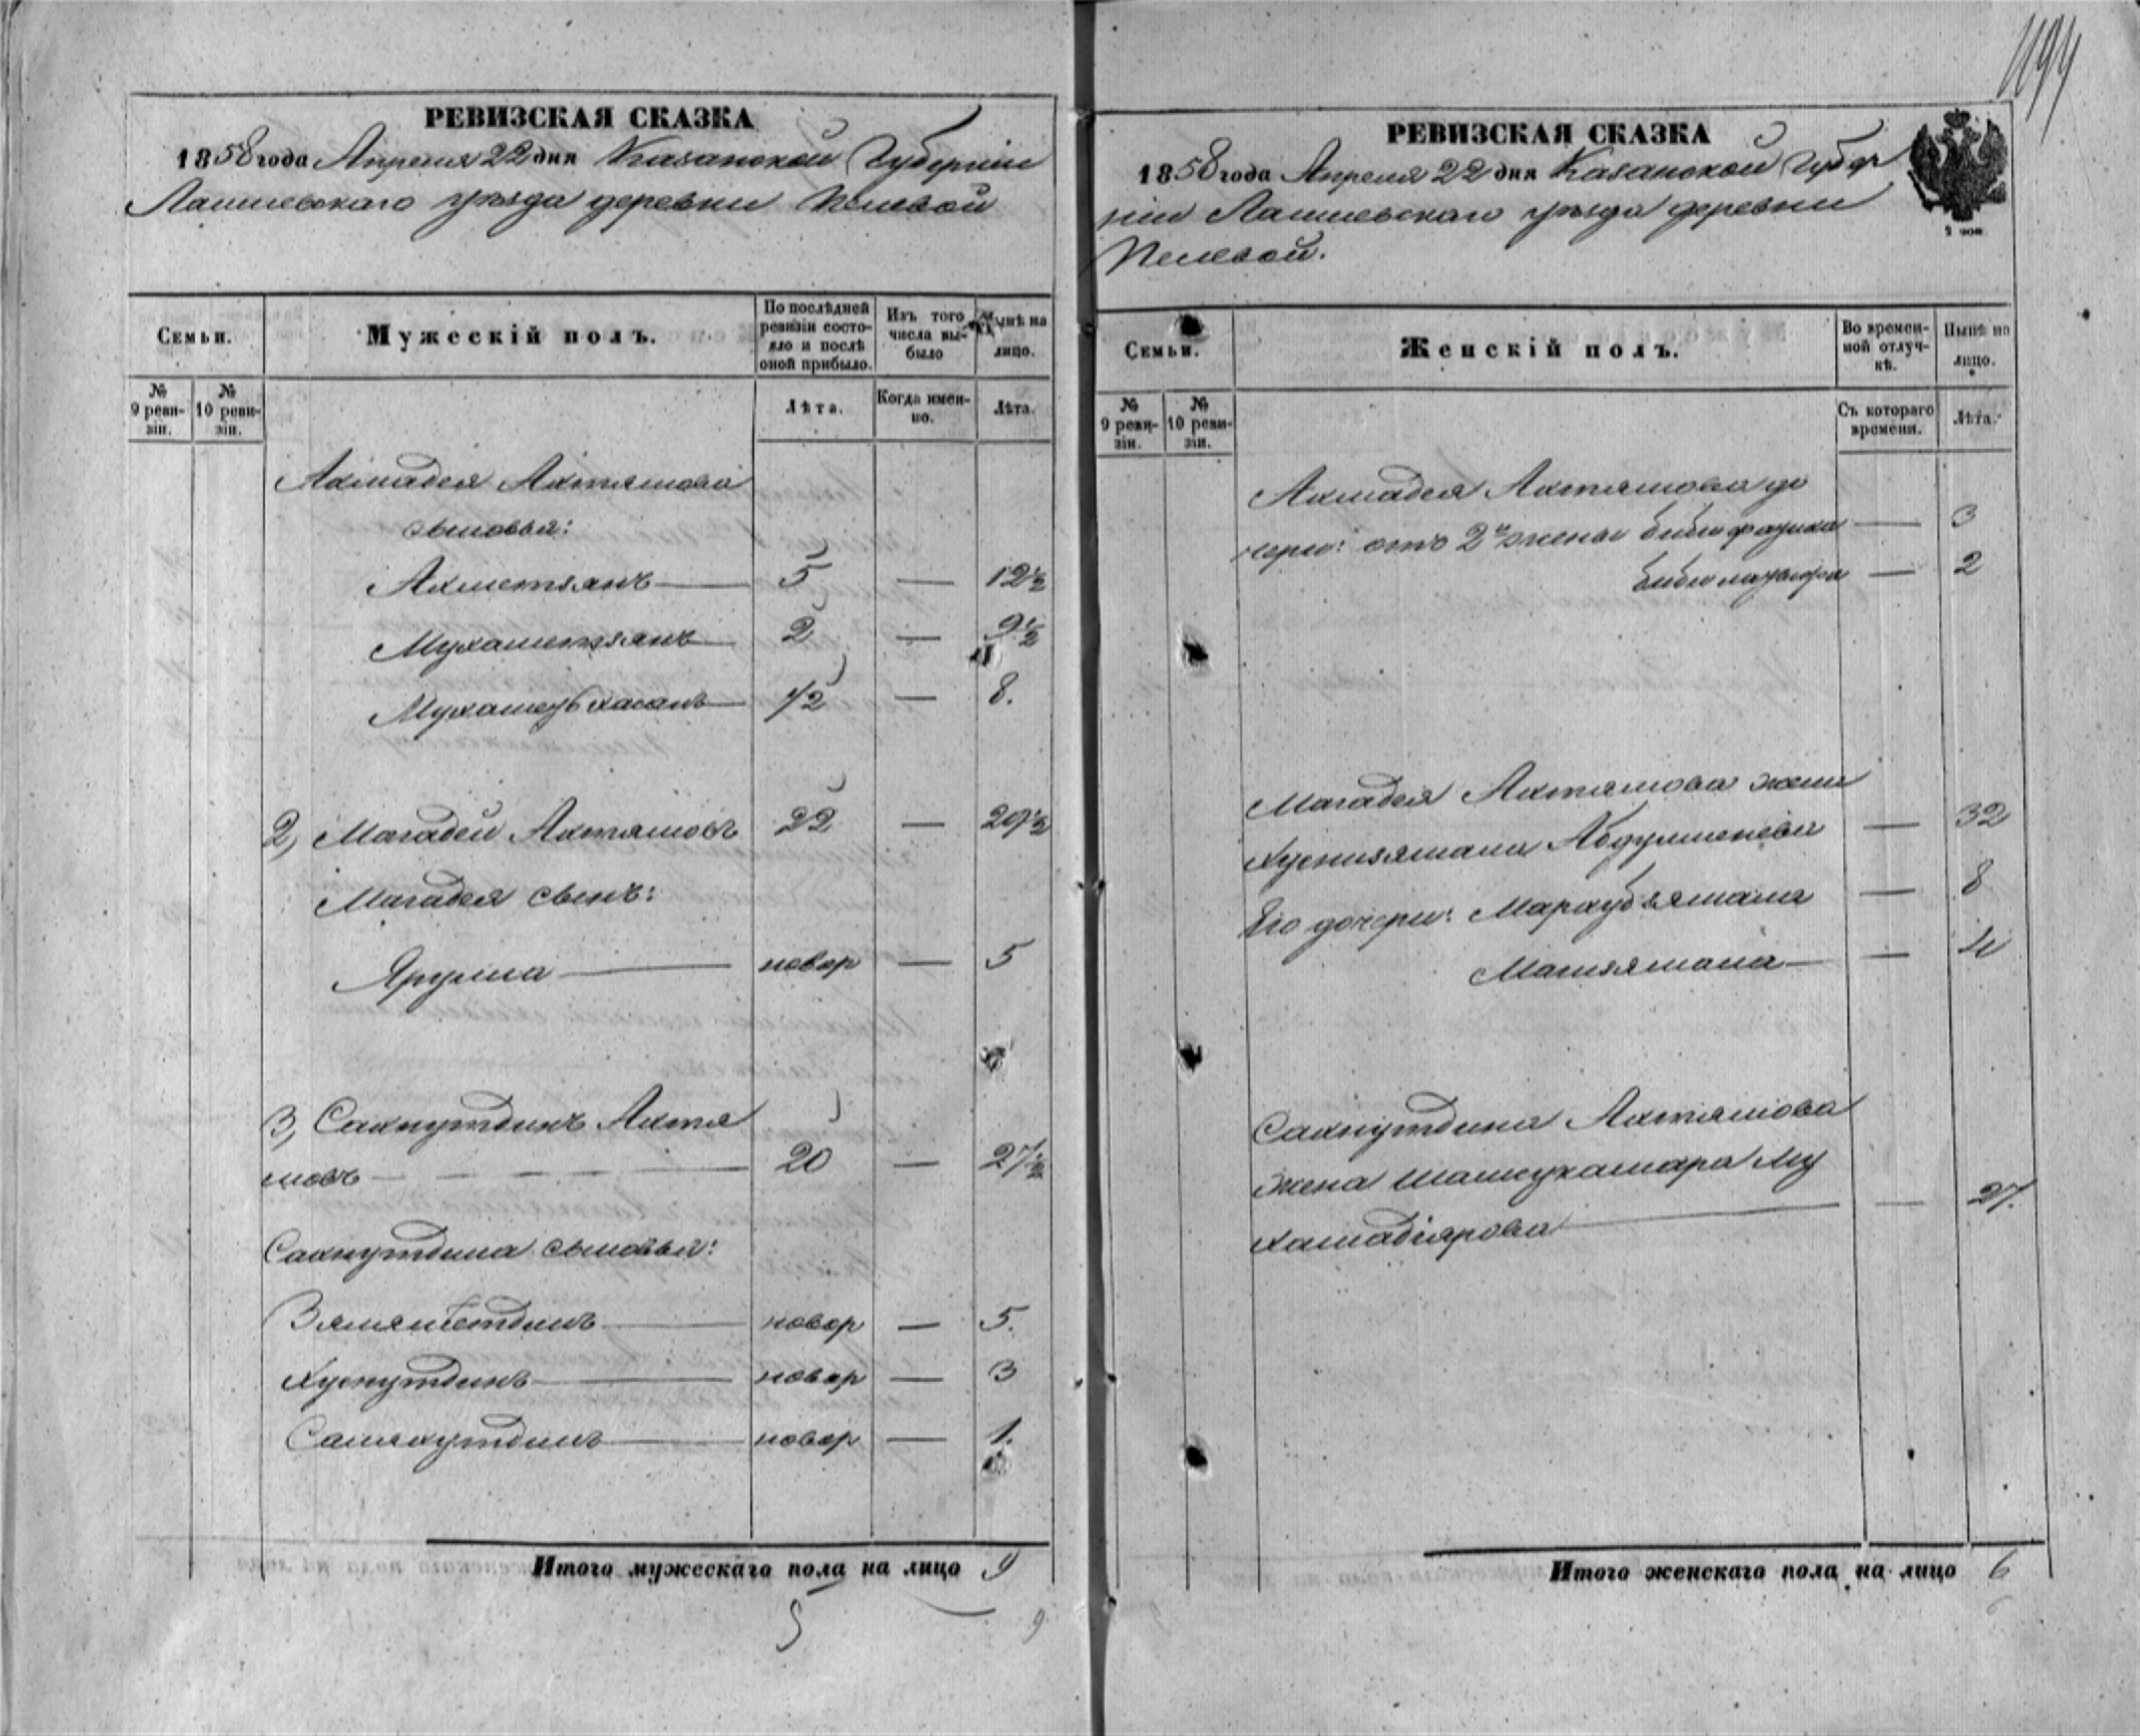 1194
РЕВИЗСКАЯ СКАЗКА
1858 года Апреля 22 дня Казанской Губерніи
Лаишевскаго уѣзда деревни Пелевой
Семьи.
Мужескій полъ.
По послѣдней ревизіи состояло и послѣ оной прибыло.
Изъ того числа выбыло
Нынѣ на лицо.
№ 9 ревизіи.
№ 10 ревизіи.
Лѣта.
Когда именно.
Лѣта.
Ахмадея Ахтямова
сыновья:
Ахметзянъ — 5 — 12½
Мухаметзянъ — 2 — 9½
Мухаметъ хасанъ — 1/2 — 8.
2, Магадей Ахтямовъ 22 — 29½
Магадея сынъ:
Ярулла — новор — 5
3, Сахпутдинъ Ахтя
мовъ — 20 — 27½
Сахпутдина сыновья:
Зямлетдинъ — новор — 5.
Хуснутдинъ — новор — 3
Самахутдинъ — новор — 1.
Итого мужескаго пола на лицо 9
5 9
РЕВИЗСКАЯ СКАЗКА
1858 года Апреля 22 дня Казанской Губер
ніи Лаишевскаго уѣзда деревни
Пелевой.
Семьи.
Женскій полъ.
Во временной отлучкѣ.
Нынѣ на лицо.
№ 9 ревизіи.
№ 10 ревизіи.
Съ котораго времени.
Лѣта.
Ахмадея Ахтямова до
чери: отъ 2й жены биби — 3
биби — 2
Магадея Ахтямова жена
Хуснизямала — 32
Его дочери: — 8
— 4
Сахпутдина Ахтямова
жена Му
хамадіярова — 27.
Итого женскаго пола на лицо 6
6